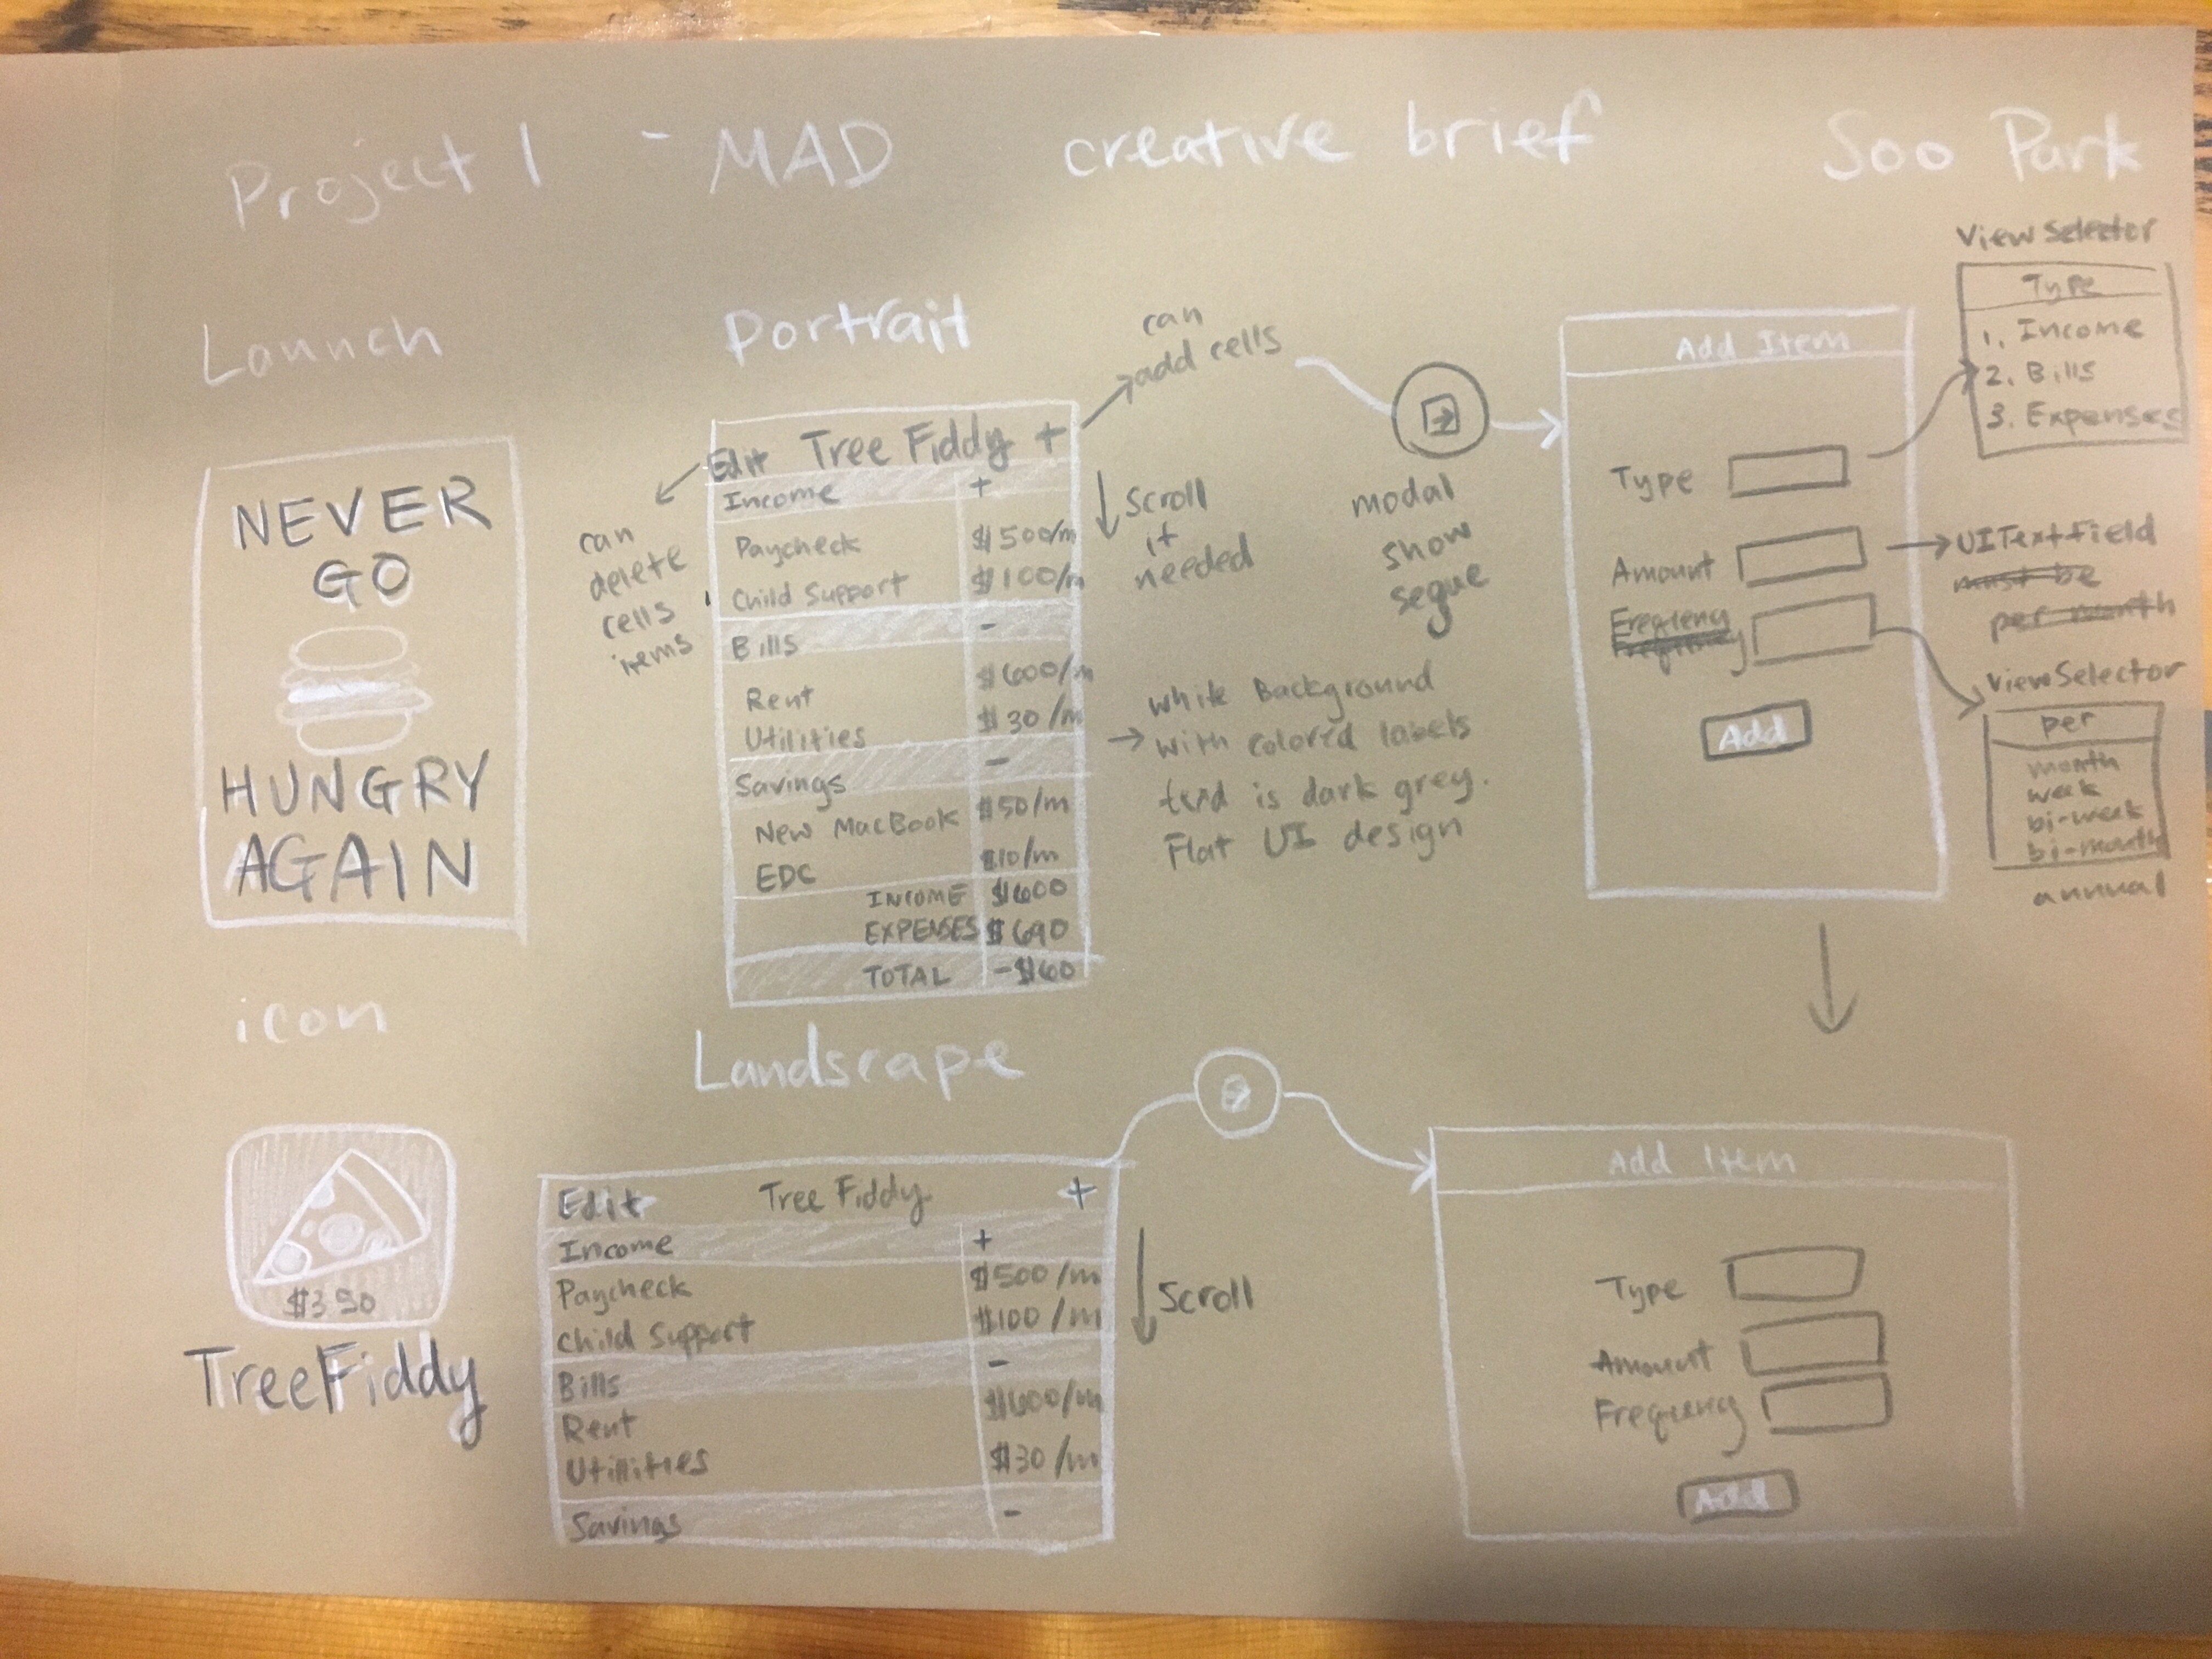 Project 1 - MAD creative brief Soo Park
Launch
NEVER
GO
HUNGRY
AGAIN
icon
$350
TreeFiddy
Portrait
Edit Tree Fiddy +
Income +
Paycheck $500/m
Child Support $100/m
Bills -
Rent $600/m
Utilities $30/m
Savings -
New MacBook $50/m
EDC $10/m
INCOME $600
EXPENSES $690
TOTAL -$60
can
delete
cells
items
can
add cells
Scroll
if
needed
modal
show
segue
white Background
with colored labels
is dark grey.
Flat UI design
Add Item
Type
Amount
Frequency
Frequency
Add
View Selector
Type
1. Income
2. Bills
3. Expenses
UITextField
must be
per month
ViewSelector
per
month
week
bi-week
bi-month
annual
Landscape
Edit Tree Fiddy +
Income +
Paycheck $500/m
Child Support $100/m
Bills -
Rent $600/m
Utillities $30/m
Savings -
Scroll
Add Item
Type
Amount
Frequency
Add